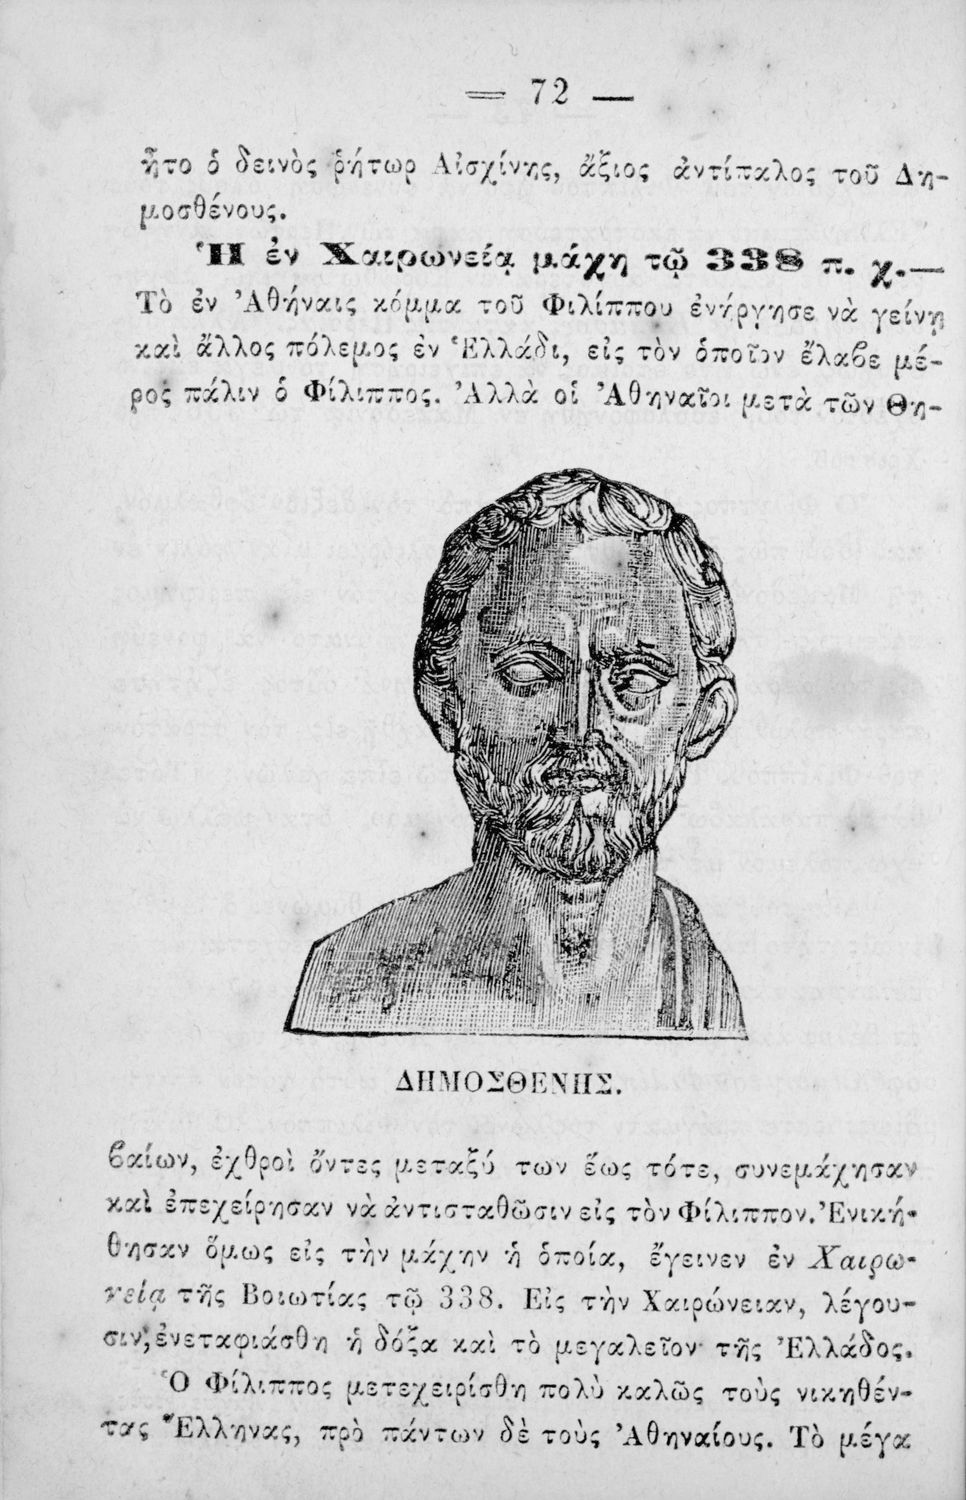 = 72 —
ἦτο ὁ δεινὸς ῥήτωρ Αἰσχίνης, ἄξιος ἀντίπαλος τοῦ Δη-
μοσθένους.
Ἡ ἐν Χαιρωνείᾳ μάχη τῷ 338 π. χ.—
Τὸ ἐν Ἀθήναις κόμμα τοῦ Φιλίππου ἐνήργησε νὰ γείνῃ
καὶ ἄλλος πόλεμος ἐν Ἑλλάδι, εἰς τὸν ὁποῖον ἔλαβε μέ-
ρος πάλιν ὁ Φίλιππος. Ἀλλὰ οἱ Ἀθηναῖοι μετὰ τῶν Θη-
ΔΗΜΟΣΘΕΝΗΣ.
βαίων, ἐχθροὶ ὄντες μεταξύ των ἕως τότε, συνεμάχησαν
καὶ ἐπεχείρησαν νὰ ἀντισταθῶσιν εἰς τὸν Φίλιππον. Ἐνική-
θησαν ὅμως εἰς τὴν μάχην ἡ ὁποία, ἔγεινεν ἐν Χαιρω-
νείᾳ τῆς Βοιωτίας τῷ 338. Εἰς τὴν Χαιρώνειαν, λέγου-
σιν, ἐνεταφιάσθη ἡ δόξα καὶ τὸ μεγαλεῖον τῆς Ἑλλάδος.
Ὁ Φίλιππος μετεχειρίσθη πολὺ καλῶς τοὺς νικηθέν-
τας Ἕλληνας, πρὸ πάντων δὲ τοὺς Ἀθηναίους. Τὸ μέγα